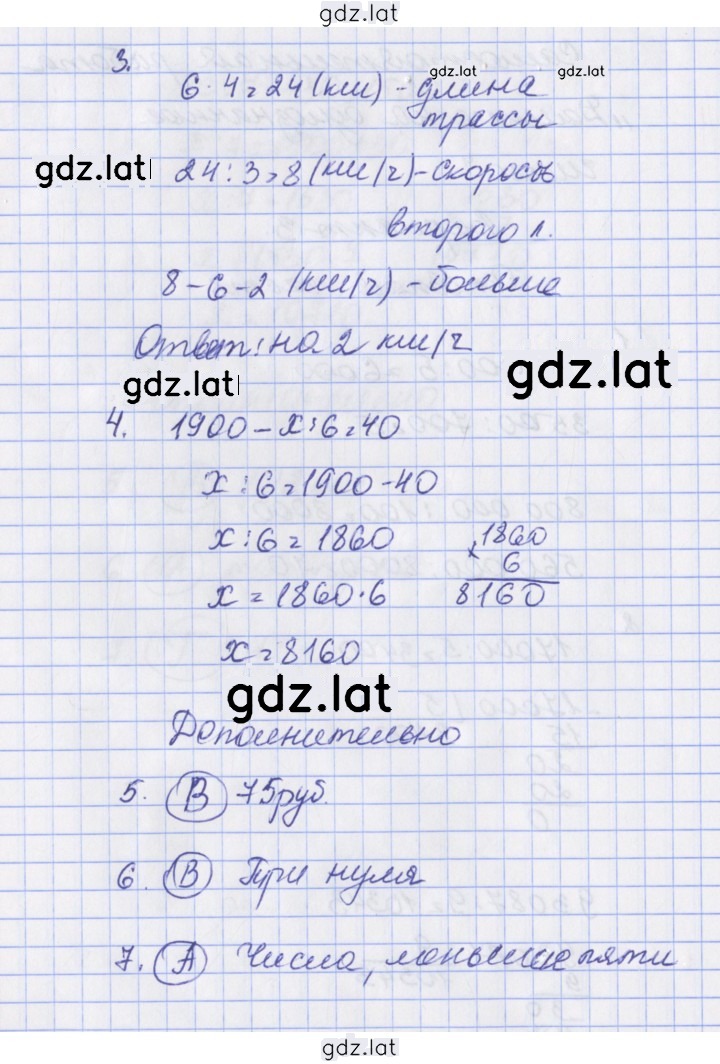 gdz.lat
3.
6·4=24(км) - длина
gdz.lat gdz.lat
трассы
gdz.lat
24:3=8(км/ч)-скорость
второго л.
8-6=2 (км/ч) - больше
Ответ: на 2 км/ч
gdz.lat
gdz.lat
4. 1900-x:6=40
x:6=1900-40
x:6=1860
x=1860·6
x=8160
1860
× 6
8160
gdz.lat
Дополнительно
5. В 75руб.
6. В Три нуля
7. А Числа, меньшие пяти
gdz.lat